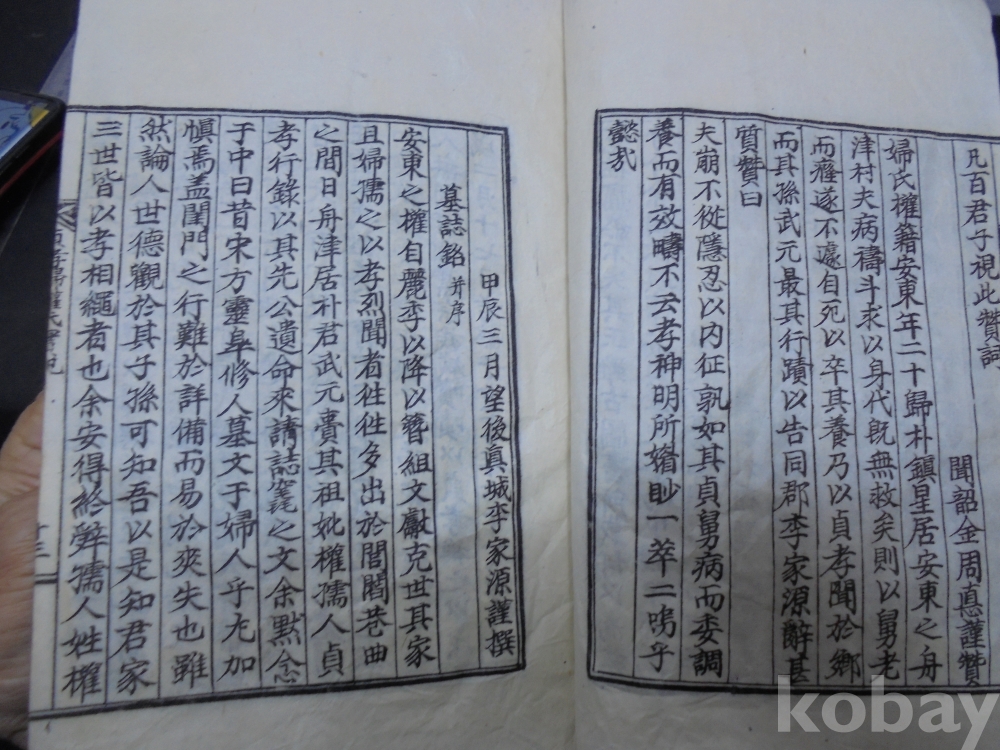 凡百君子視此贊詞
聞韶金周悳謹贊
婦氏權籍安東年二十歸朴鎭星居安東之舟
津村夫病禱斗求以身代旣無救矣則以舅老
而癃遂不遽自死以卒其養乃以貞孝聞於鄕
而其孫武元最其行蹟以告同郡李家源辭甚
質贊曰
夫崩不從隱忍以內征孰如其貞舅病而委調
養而有效疇不云孝神明所㛃眇一萃二嗚乎
懿哉
甲辰三月望後眞城李家源謹撰
墓誌銘 幷序
安東之權自麗季以降以簪組文獻克世其家
且婦孺之以孝烈聞者往往多出於閭閻巷曲
之間日舟津居朴君武元賷其祖妣權孺人貞
孝行錄以其先公遺命來請誌窆之文余黙念
于中曰昔宋方靈皐修人墓文于婦人乎尤加
愼焉盖閨門之行難於詳備而易於爽失也雖
然論人世德觀於其子孫可知吾以是知君家
三世皆以孝相繩者也余安得終辭孺人姓權
十三
kobay